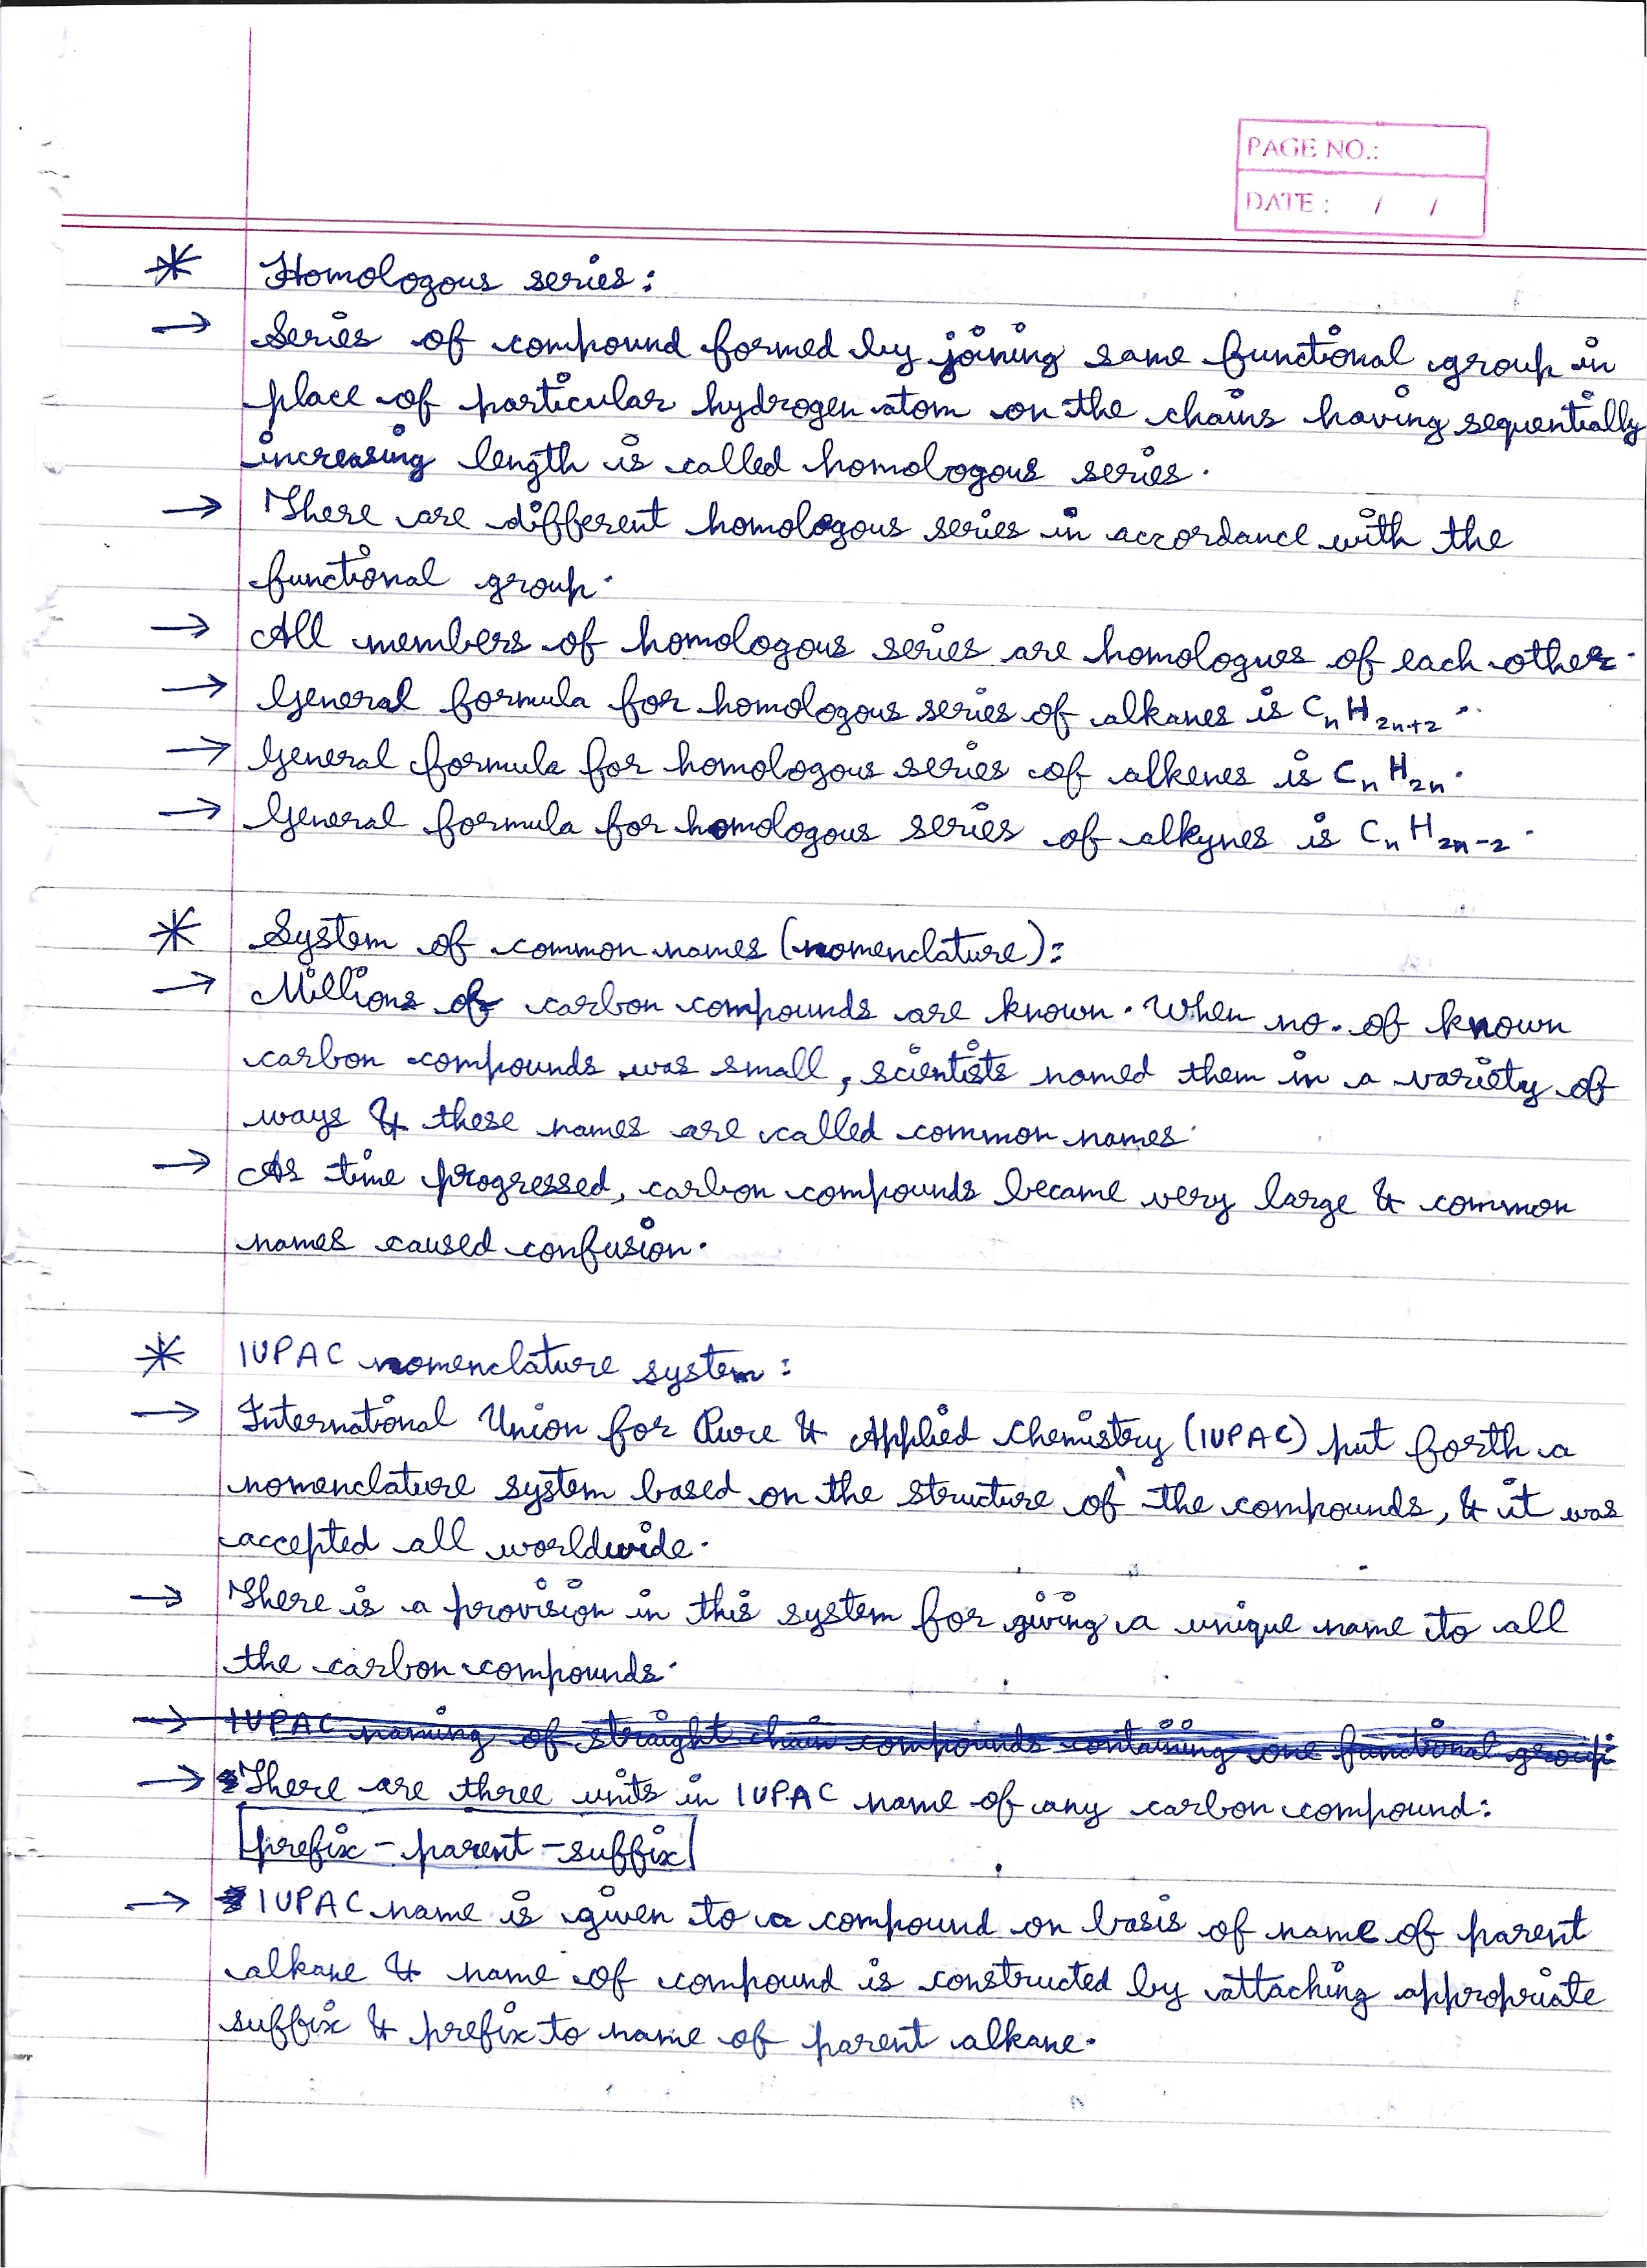 PAGE NO.:
DATE : / /
* Homologous series:
→ Series of compound formed by joining same functional group in
place of particular hydrogen atom on the chains having sequentially
increasing length is called homologous series.
→ There are different homologous series in accordance with the
functional group.
→ All members of homologous series are homologues of each other.
→ General formula for homologous series of alkanes is CₙH₂ₙ₊₂.
→ General formula for homologous series of alkenes is CₙH₂ₙ.
→ General formula for homologous series of alkynes is CₙH₂ₙ₋₂.
* System of common names (nomenclature):
→ Millions of carbon compounds are known. When no. of known
carbon compounds was small, scientists named them in a variety of
ways & these names are called common names.
→ As time progressed, carbon compounds became very large & common
names caused confusion.
* IUPAC nomenclature system:
→ International Union for Pure & Applied Chemistry (IUPAC) put forth a
nomenclature system based on the structure of the compounds, & it was
accepted all worldwide.
→ There is a provision in this system for giving a unique name to all
the carbon compounds.
→ IUPAC naming of straight chain compounds containing one functional group:
→ There are three units in IUPAC name of any carbon compound:
prefix - parent - suffix
→ IUPAC name is given to a compound on basis of name of parent
alkane & name of compound is constructed by attaching appropriate
suffix & prefix to name of parent alkane.